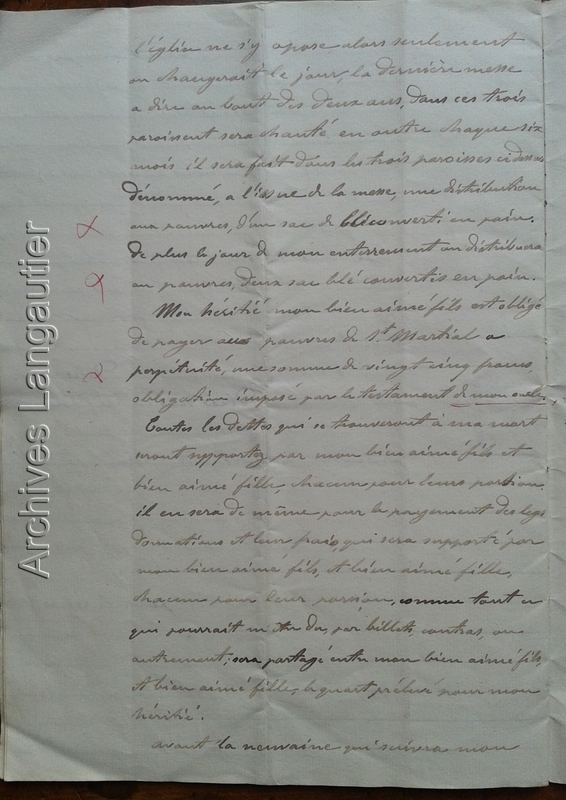 l'église ne s'y opose alors seulement
on changerait le jour, la dernière messe
a dire au bout des deux ans, dans ces trois
paroisses sera chanté en outre chaque six
mois il sera fait dans les trois paroisses ci dessus
dénommé, a l'issue de la messe, une distribution
aux pauvres, d'un sac de blé converti en pain.
de plus le jour de mon enterrement on distribuera
au pauvres, deux sac blé convertis en pain.
Mon hérité mon bien aimé fils est obligé
de payer aux pauvres de St Martial a
perpetuité, une somme de vingt cinq francs
obligation imposé par le testament de mon oncle,
Toutes les dettes qui se trouveront à ma mort
seront supportez par mon bien aimé fils et
bien aimé fille, chacun pour leurs portion.
il en sera de même pour le payement des legs
donnations et leur frais, qui sera supporté par
mon bien aimé fils, et bien aimé fille,
chacun pour leur portion, comme tout ce
qui pourrait m'être du, par billets, contras, ou
autrement; sera partagé entre mon bien aimé fils,
et bien aimé fille, le quart prélevé pour mon
hérité.
avant la neuvaine qui suivra mon
Archives Langautier